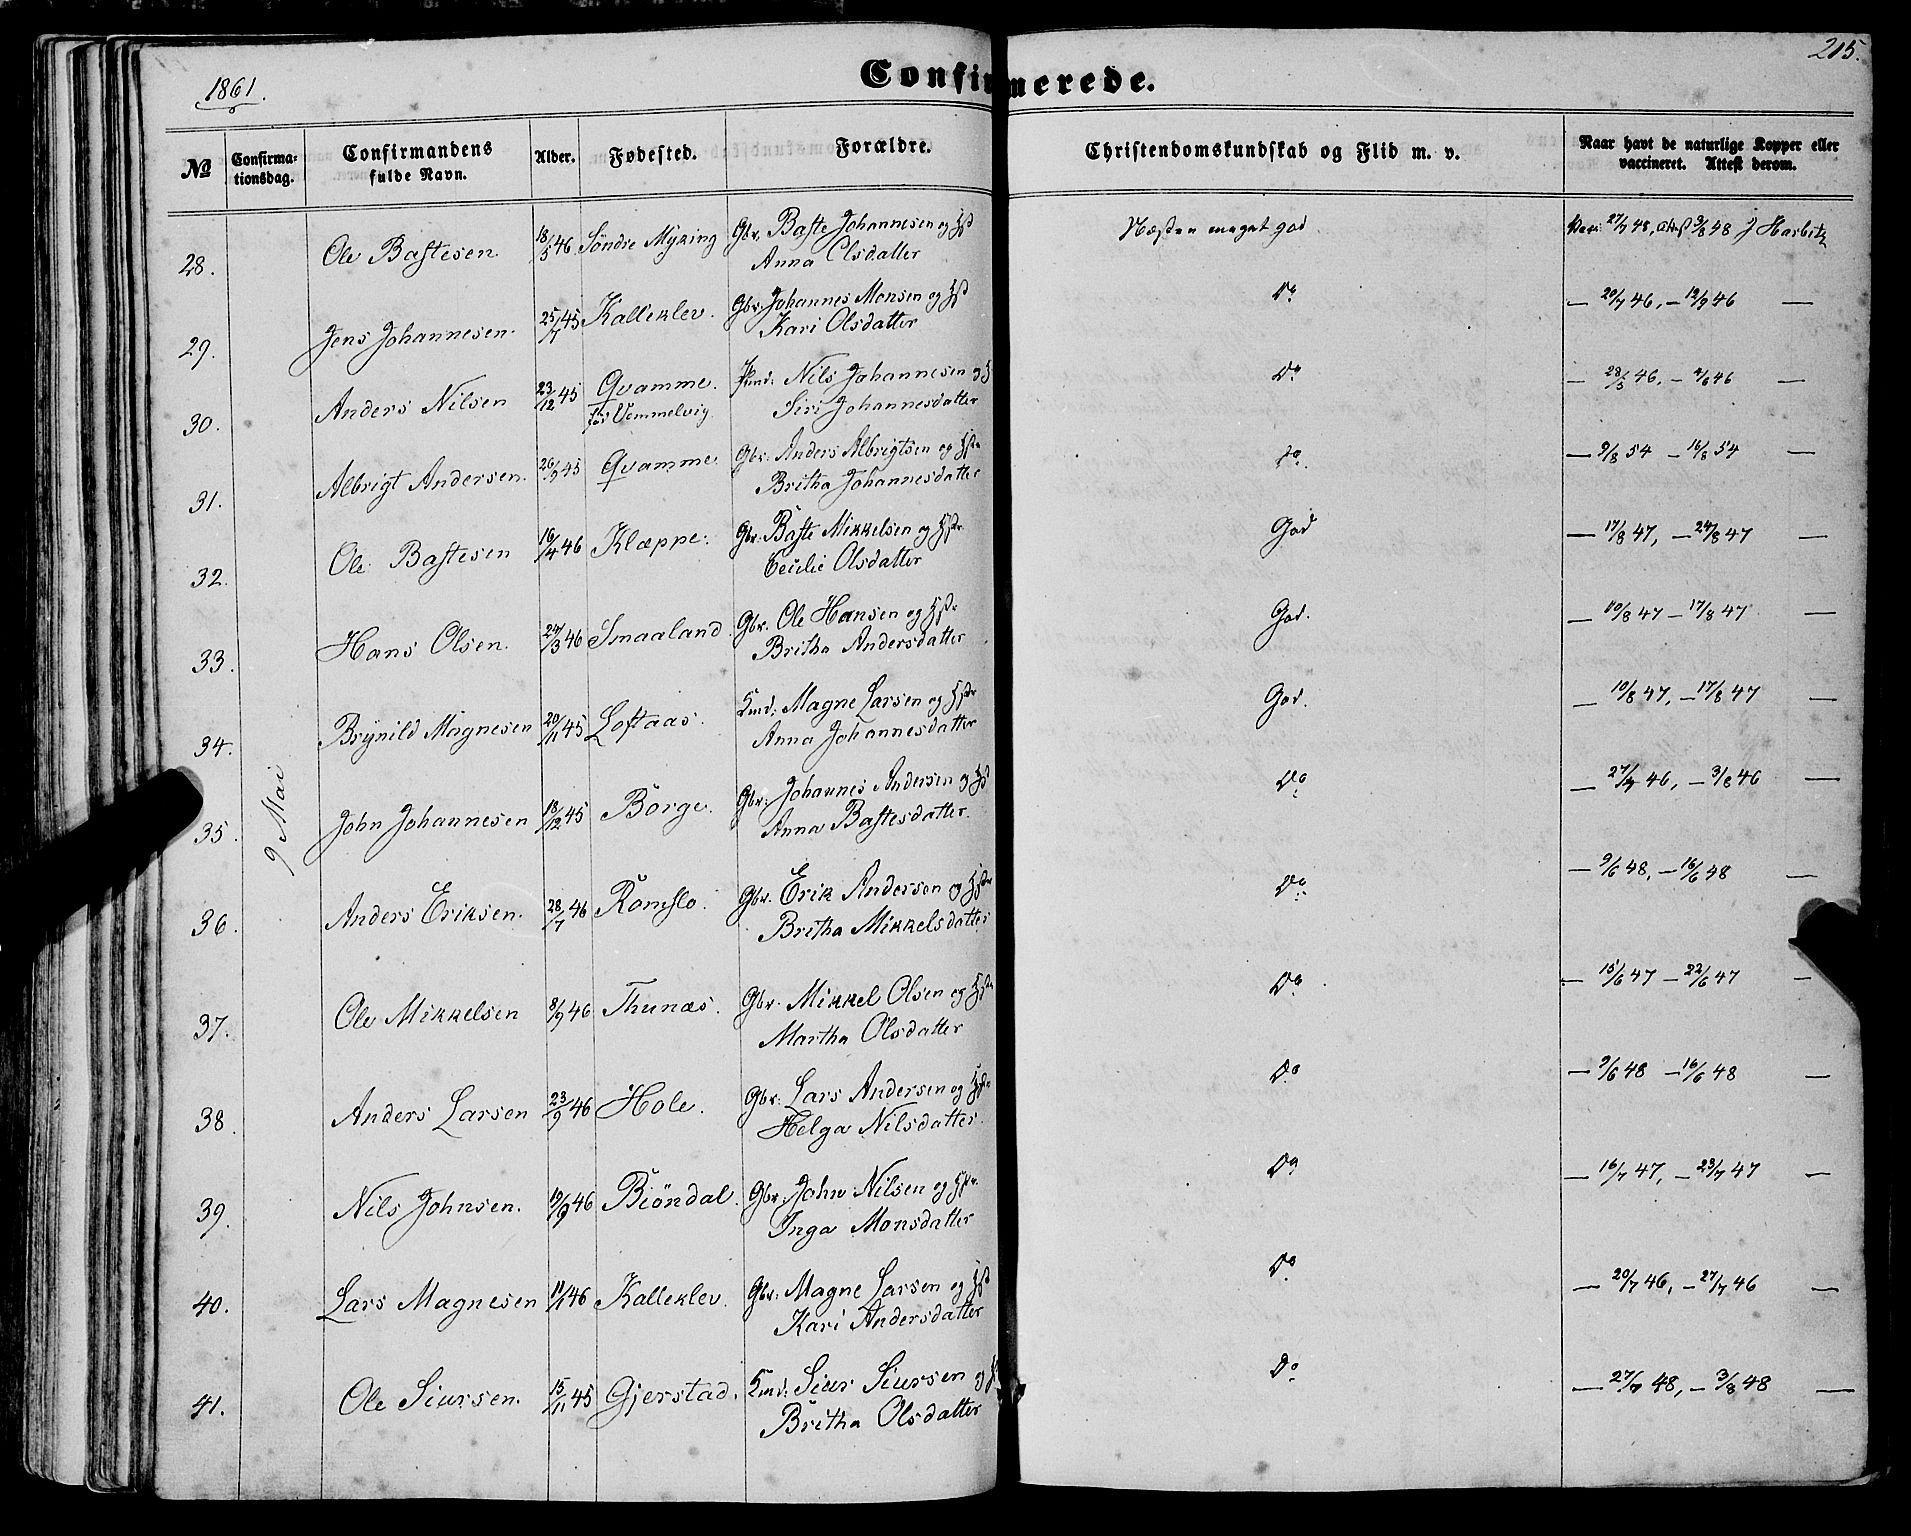 1861.
Confirmerede.
215.
No
Confirma-
tionsdag.
Confirmandens
fulde Navn.
Alder.
Fødested.
Forældre.
Christendomskundskab og Flid m. v.
Naar havt de naturlige Kopper eller
vaccineret. Attest derom.
9 Mai
28. Ole Bastesen 18/5 46 Søndre Myking Gbr. Baste Johannesen og Hst Næsten meget god Vac: 27/7 48, Att. 3/8 48 J Harbitz
Anna Olsdatter
29. Jens Johannesen. 25/7 45 Kalleklev. Gbr: Johannes Monsen og Hst Do — 20/7 46, — 12/9 46 —
Kari Olsdatter
30. Anders Nilsen 23/12 45 Qvamme. Nils Johannesen og H Do — 28/5 46, — 4/6 46 —
før Vemmelvig Siri Johannesdatter
31. Albrigt Andersen. 26/9 45 Qvamme Gbr: Anders Albrigtsen og Hstr Do. — 9/8 54 — 16/8 54 —
Britha Johannesdatter
32. Ole Bastesen 16/4 46 Klæppe. Gbr: Baste Mikkelsen og Hstr. God — 17/8 47, — 24/8 47 —
Cecilie Olsdatter
33. Hans Olsen. 24/3 46 Smaaland. Gbr. Ole Hansen og Hstr God. — 10/8 47 — 17/8 47 —
Britha Andersdatter
34. Brynild Magnesen 20/11 45 Loftaas. Hmd: Magne Larsen og Hstr God. — 10/8 47, — 17/8 47 —
Anna Johannesdatter
35. John Johannesen 18/12 45 Borge. Gbr: Johannes Andersen og Hst Do — 27/7 46, — 3/8 46 —
Anna Bastesdatter.
36. Anders Eriksen. 28/7 46 Romslo. Gbr. Erik Andersen og Hstr Do — 9/6 48, — 16/6 48 —
Britha Mikkelsdatter
37. Ole Mikkelsen 8/9 46 Thunæs. Gbr. Mikkel Olsen og Hstr Do — 15/6 47 — 22/6 47 —
Martha Olsdatter
38. Anders Larsen 23/9 46 Hole. Gbr: Lars Andersen og Hstr Do — 9/6 48 — 16/6 48 —
Helga Nilsdatter.
39. Nils Johnsen. 19/9 46 Biöndal. Gbr: John Nilsen og Hstr. Do — 16/7 47, — 23/7 47 —
Inga Monsdatter
40. Lars Magnesen 11/1 46 Kalleklev. Gbr: Magne Larsen og Hst Do — 20/7 46, — 27/7 46 —
Kari Andersdatter
41. Ole Siursen. 15/11 45 Gjerstad. Hmd: Siur Siursen og H Do — 27/7 48, — 3/8 48 —
Britha Olsdatter